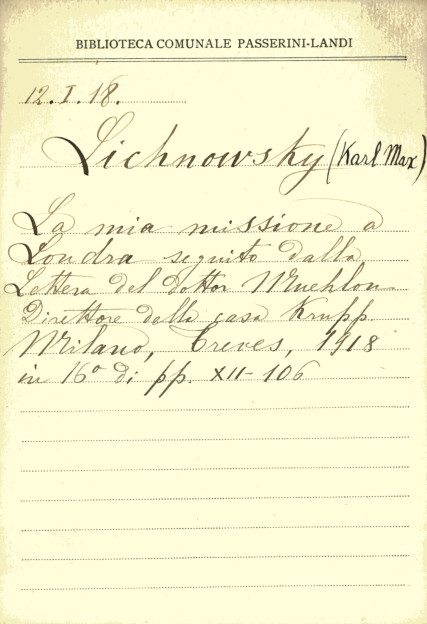 BIBLIOTECA COMUNALE PASSERINI-LANDI
12.I.18.
Lichnowsky (Karl Max)
La mia missione a
Londra seguito dalla
Lettera del dottor Muehlon
Direttore della casa Krupp
Milano, Treves, 1918
in 16º di pp. XII-106